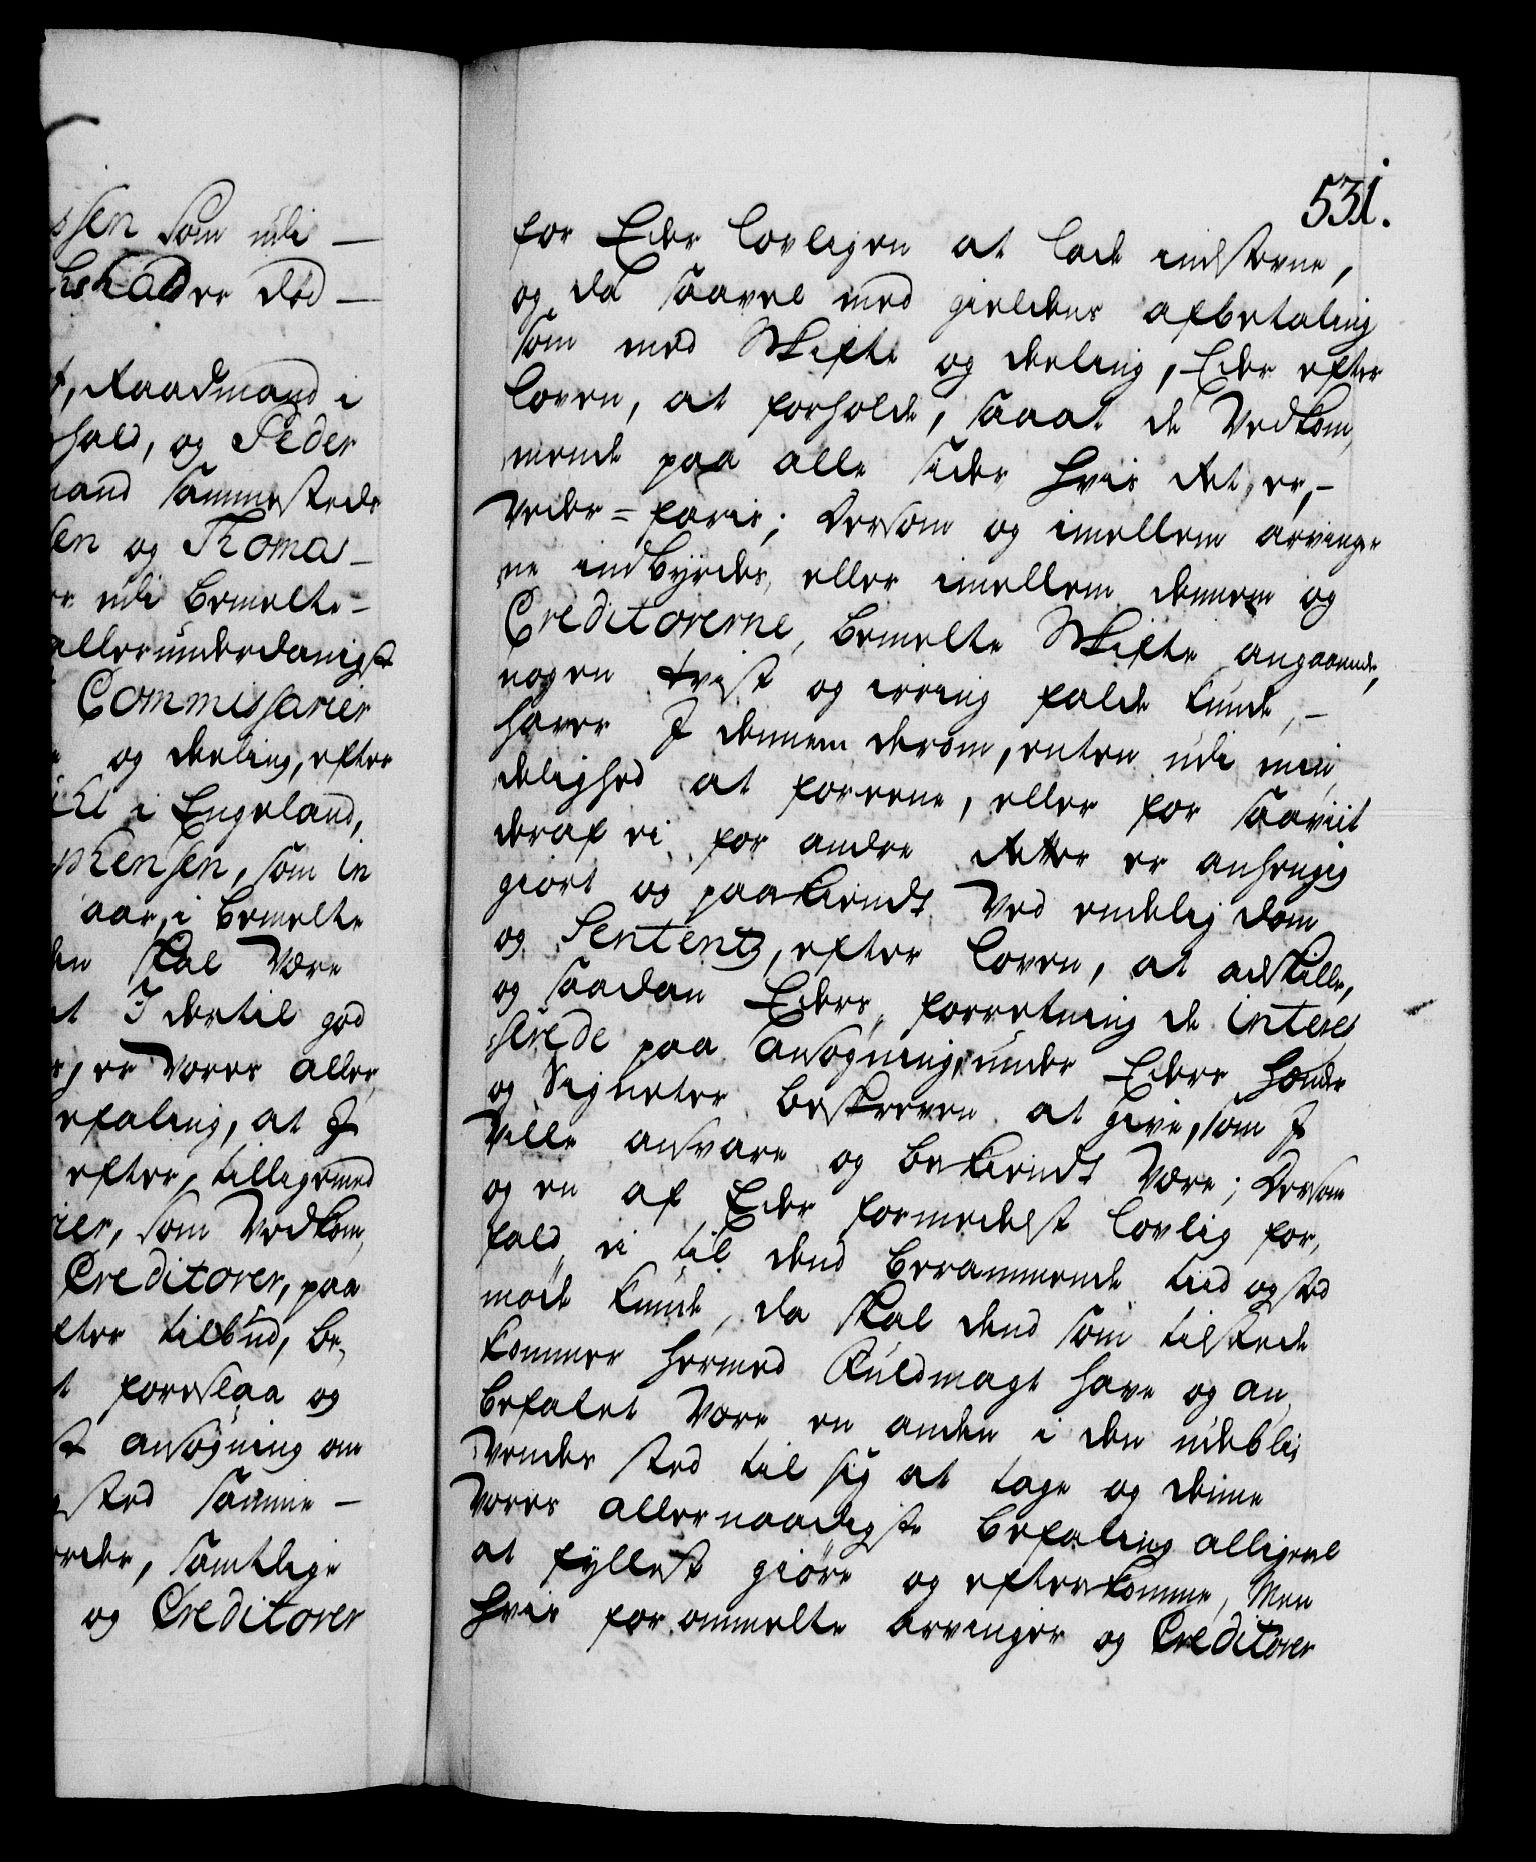 ssen som udi —
kskades død —
t, Raadmand i
hold, og Peder
mand sammesteds
sen og Thomas —
er udi bemelte —
allerunderdanigst
Commissarier
og deeling, efter
i Engeland,
phensen, som in
aar, i bemelte
den skal være
at I dertil god
er, er Vores aller,
befaling, at I
efter, tilligemed
rier, som vedkom,
Creditorer, paa
efter tilbud, be,
t foreslaa og
st ansøgning om
sted samme —
samtlige
og Creditorer
531.
for Eder lovligen at lade indstevne,
og da saavel med gieldens afbetaling
som med Skifte og deeling, Eder efter
loven, at forholde, saa at de Vedkom,
mende paa alle sider hvis Ret er, —
Veder=faris; Dersom og imellem arvinger
ne indbyrdes, eller imellem dennem og
Creditorerne, bemelte Skifte angaaende,
nogen tvist og irring falde kunde, —
haver I dennem derom, enten udi min,
delighed at foreene, eller for saaviit
deraf ei for andre Retter er anhengig
giort og paakiendt Ved endelig dom
og Sententz, efter loven, at adskille,
og saadan Eders forretning de interes
serede paa ansøgning, under Eders Hænder
og Signeter beskreven at give, som I
Ville ansvare og bekiendt være; Dersom
og en af Eder formedelst lovlig for,
fald ei til dend berammende tiid og sted
møde kunde, da skal dend som tilstede
kommer hermed Fuldmagt have og an,
befalet være en anden i den udebli,
vendes sted til sig at tage og denne
Vores allernaadigste befaling alligevel
at fyllest giøre og efterkomme, Men
hvis forommelte arvinger og Creditorer